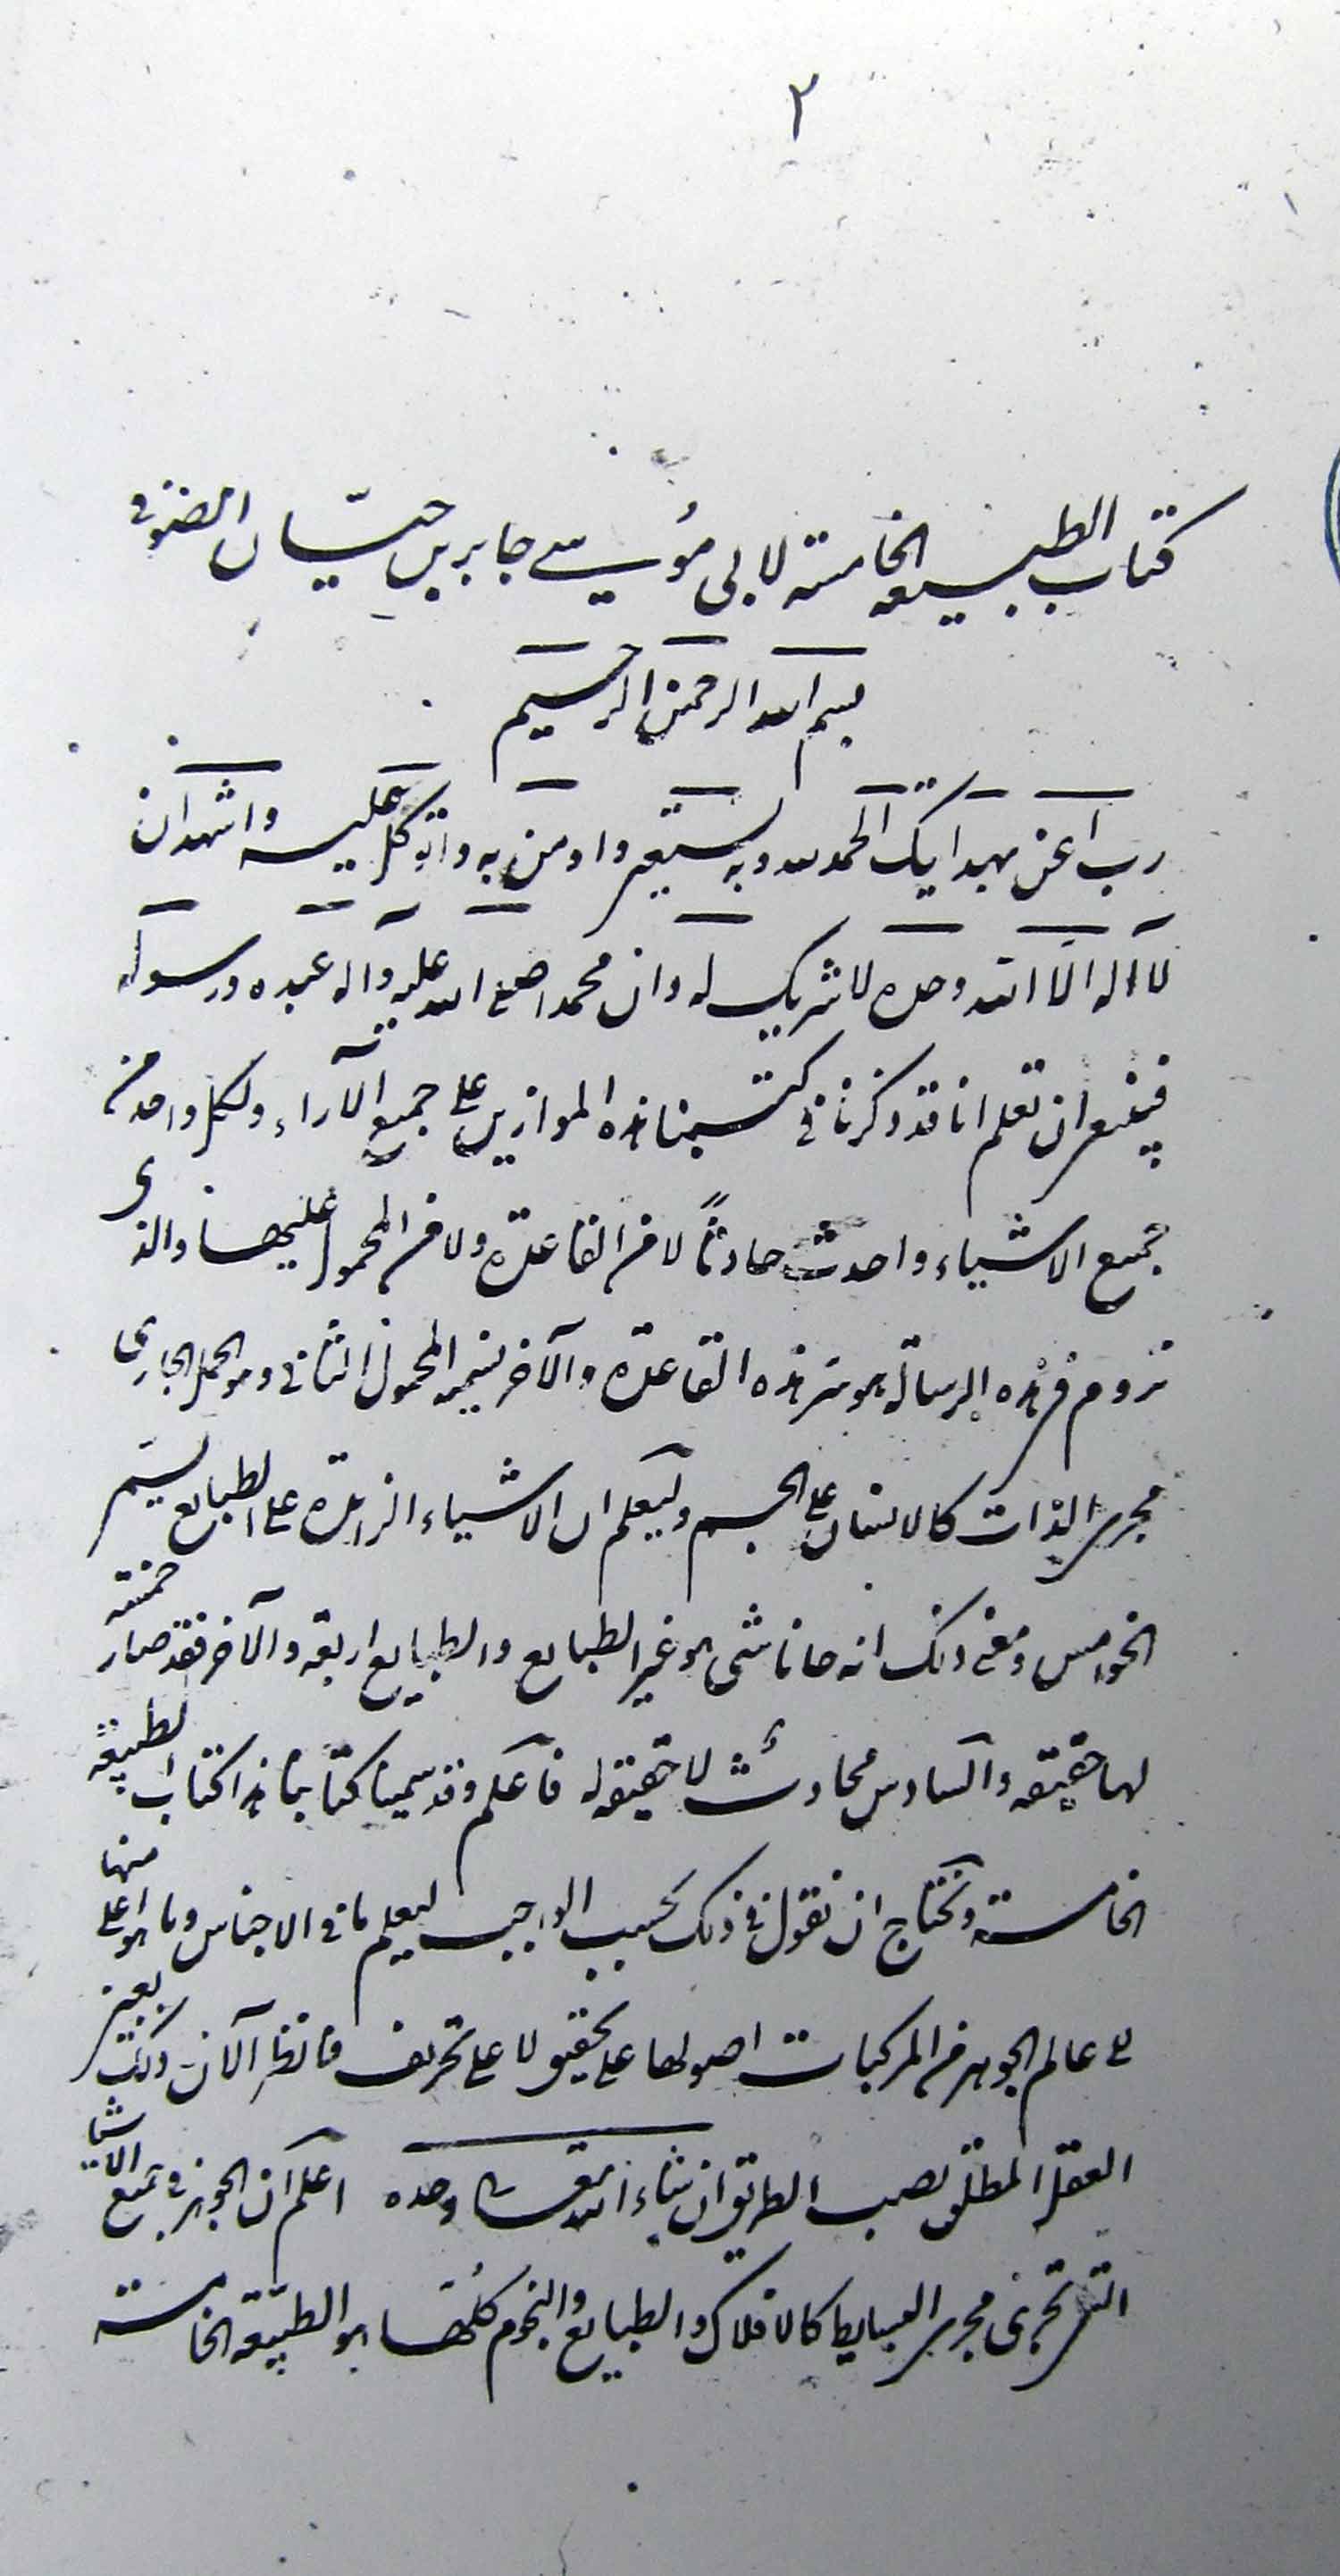 ٢
كتاب الطبيعه الخامسته لابى موسى جابر بن حيان الصوفى
بسم الله الرحمن الرحيم
رب اعن بهدايتك الحمد لله وبه نستعين واومن به واتوكل عليه واشهد ان
لا اله الا الله وحده لا شريك له وان محمدا صلى الله عليه وآله عبده ورسوله
فينبغى ان تعلم انا قد ذكرنا فى كتبنا هذه الموازين على جميع الآراء ولكل واحد من
جميع الاشياء واحدث حادثاً لا من القاعدة ولا من المحمول عليها والذى
نروم فى هذه الرسالة هو من هذه القاعدة والآخر نسميه المحمول الثانى وهو الحمل الجارى
مجرى الذات كالانسان على الجسم وليعلم ان الاشياء الزايدة على الطبايع تسمى
الخوامس ومعنى ذلك انه مانا شى هو غير الطبايع والطبايع اربعة والآخر فقد صار خمسته
لها حقيقه والسادس محادث لا حقيقه له فاعلم وقد سمينا كتابنا هذا كتاب الطبيعة
الخامسته ونحتاج ان نقول فى ذلك بحسب الواجب ليعلم ما فى الاجناس وما هو اعلى منها
فى عالم الجوهر من المركبات اصولها على تحقيق لا على تحريف فانظر الآن وكيف بعين
العقل المطلق تصب الطريق ان شاء الله تعالى وحده اعلم ان الجوهر فى جميع الاشيا
التى تجرى مجرى البسايط كالافلاك والطبايع والنجوم كلها هو الطبيعه الخامسته